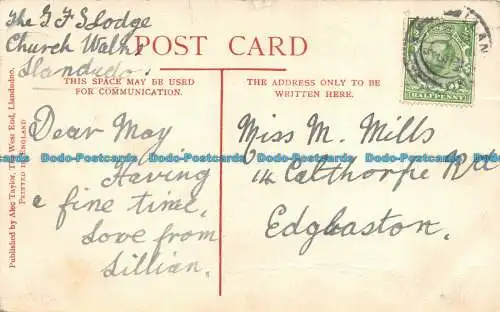 The G F S Lodge
Church Walks
Llandudno.
POST CARD
THIS SPACE MAY BE USED
FOR COMMUNICATION.
THE ADDRESS ONLY TO BE
WRITTEN HERE.
HALFPENNY
Dear May
Having
a fine time.
Love from
Lillian.
Miss M. Mills
14 Calthorpe Rd
Edgbaston.
Published by Alec Taylor, The West End, Llandudno.
PRINTED IN ENGLAND
Dodo-Postcards Dodo-Postcards Dodo-Postcards Dodo-Postcards Dodo-Postcards